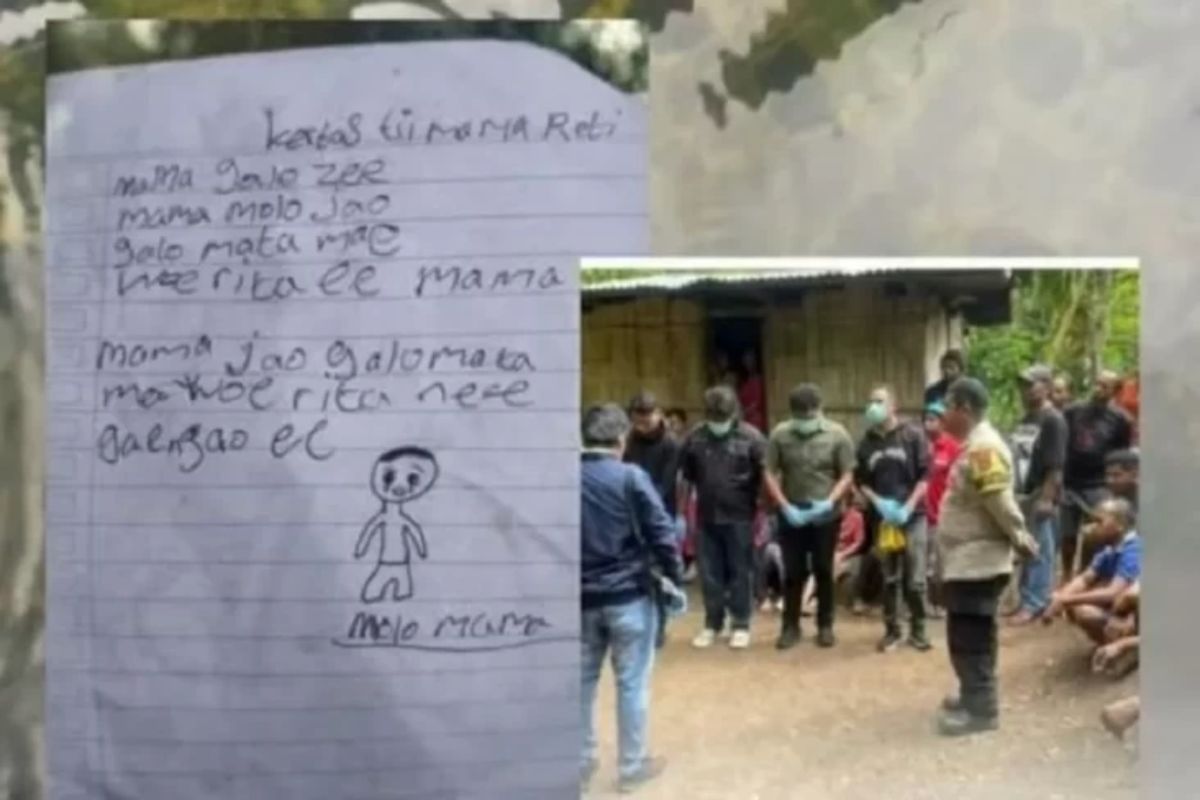 kertas tii mama Reti
mama galo zee
mama molo Jao
galo mata mae
woe rita ee mama
mama jao galo mata
mae woe rita ne
gae ngao ee
molo mama